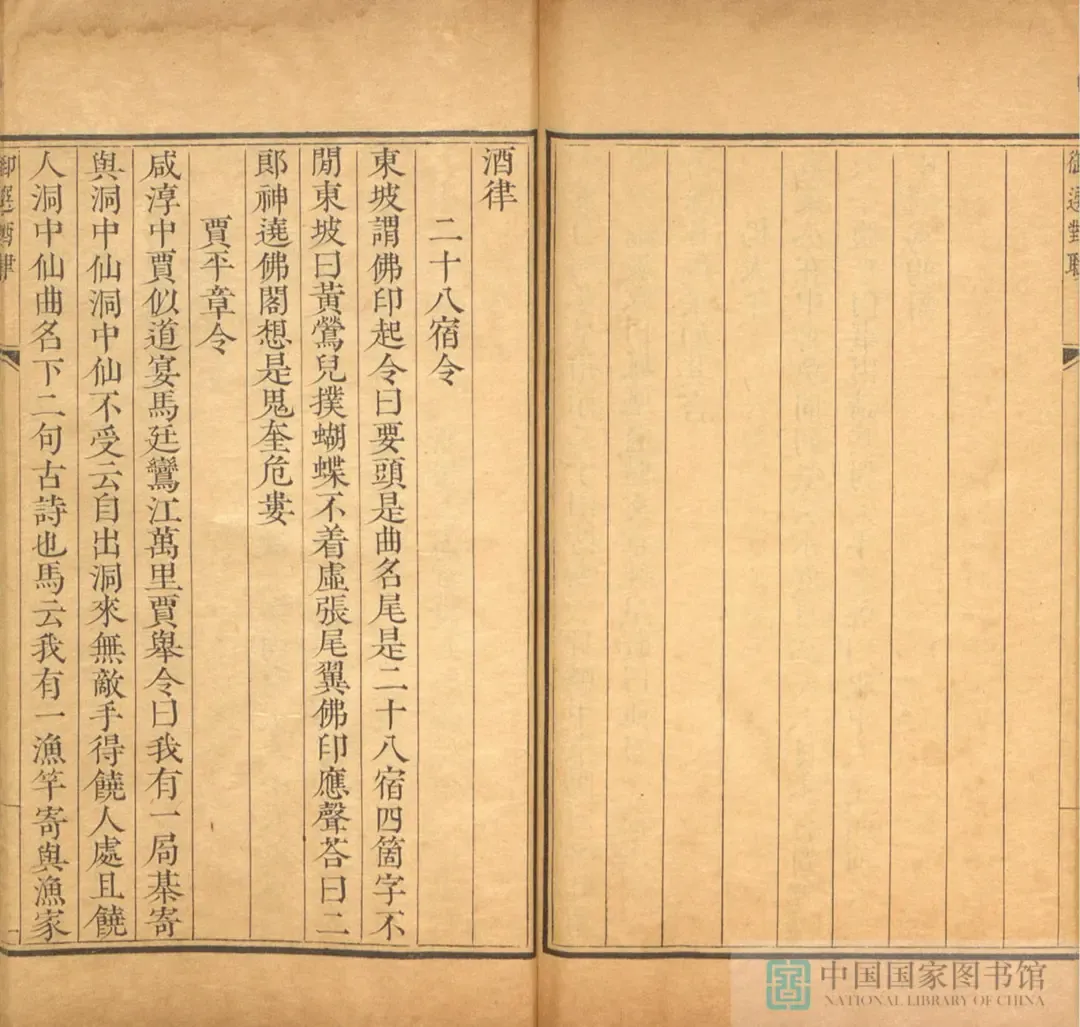 御選對聯
酒律
二十八宿令
東坡謂佛印起令曰要頭是曲名尾是二十八宿四箇字不
閒東坡曰黃鶯兒撲蝴蝶不着虛張尾翼佛印應聲答曰二
郎神遶佛閣想是鬼奎危婁
賈平章令
咸淳中賈似道宴馬廷鸞江萬里賈舉令曰我有一局棊寄
與洞中仙洞中仙不受云自出洞來無敵手得饒人處且饒
人洞中仙曲名下二句古詩也馬云我有一漁竿寄與漁家
御選酒律
一
中国国家图书馆
NATIONAL LIBRARY OF CHINA